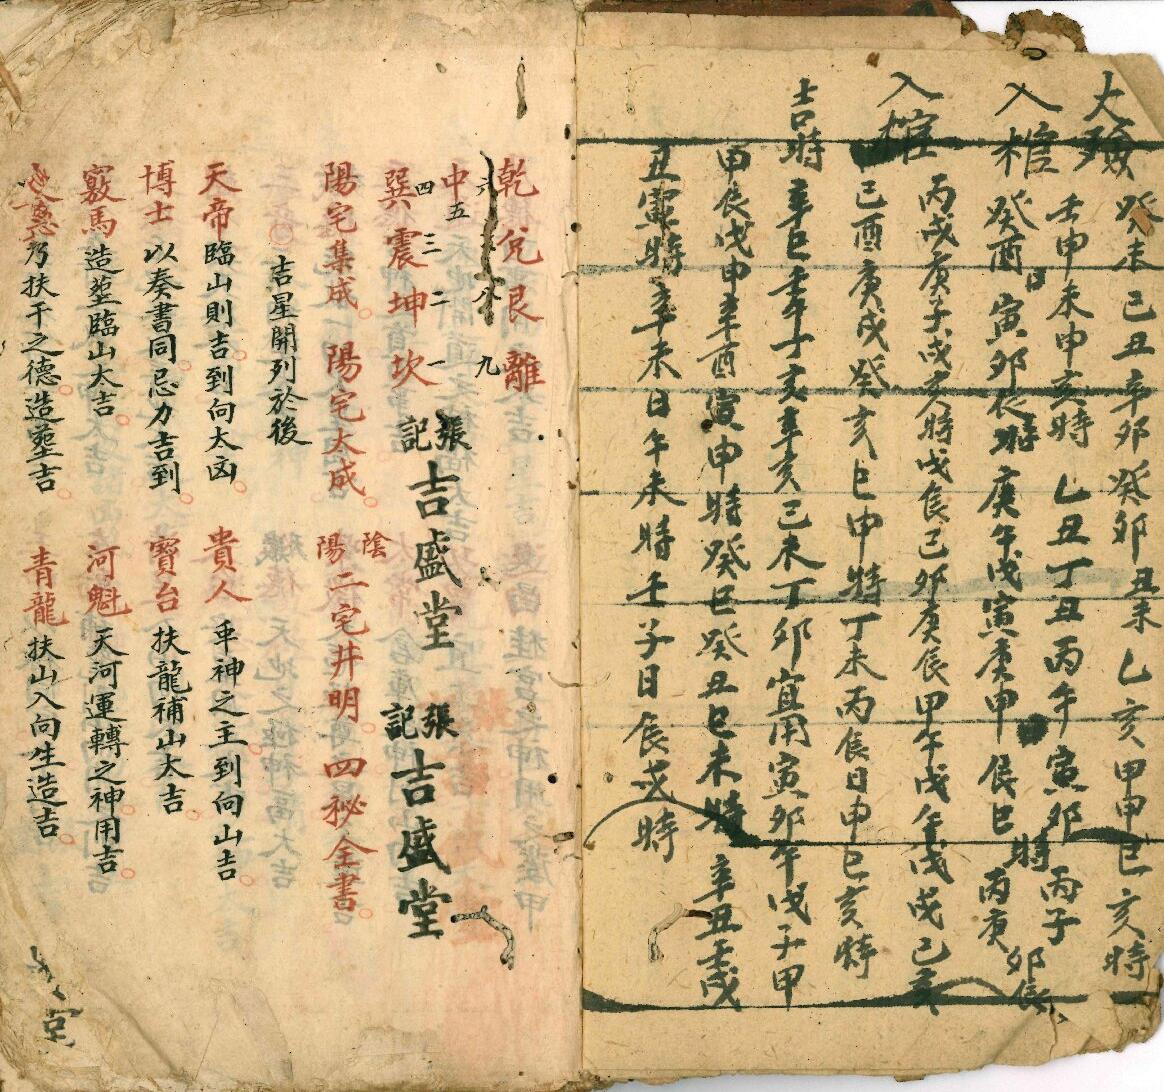 大殮 癸未 己丑 辛卯 癸卯 丑未 乙亥 甲申 巳亥時
入棺 壬申 未申亥時 乙丑 丁丑 丙午 寅卯時 丙子
癸酉日 寅卯辰時 庚午 戊寅 庚申 辰巳時 丙庚 卯辰
入棺 丙戌 庚子 戌亥時 戊辰 己卯 庚辰 甲午 戊午 戊戌 己亥
己酉 庚戌 癸亥 巳申時 丁未 丙辰日 申巳亥時
吉時 辛巳 壬午 丁亥 辛亥 己未 丁卯 宜用寅卯午戌子甲
甲辰 戊申 辛酉 寅申時 癸巳 癸丑 巳未時 辛丑 壬戌
丑寅時 辛未日午未時 壬子日辰戌時
乾 兌 艮 離
六 八 九
中 巽 震 坤 坎
五 四 三 二 一
張記 吉盛堂 張記 吉盛堂
陽宅集成 陽宅大成 陰陽二宅井明四祕全書
吉星開列於後
天帝 臨山則吉到向太凶 貴人 乗神之主到向山吉
博士 以奏書同忌力吉到 寶台 扶龍補山大吉
竅馬 造塟臨山大吉 河魁 天河運轉之神用吉
乃扶干之德造塟吉 青龍 扶山入向生造吉
堂